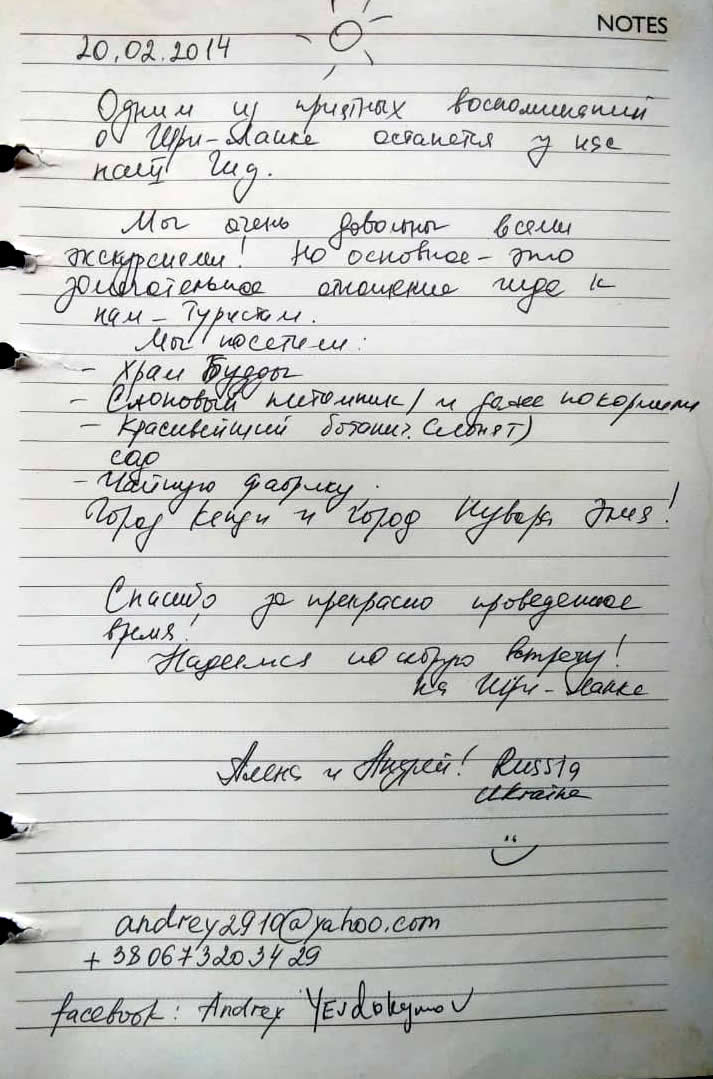 NOTES
20.02.2014
Одним из приятных воспоминаний
о Шри-Ланке останется у нас
наш Гид.
Мы очень довольны всеми
экскурсиями! Но основное - это
замечательное отношение гида к
нам - Туристам.
Мы посетили:
- Храм Будды
- Слоновый питомник (и даже покормили
- Красивейший ботанич. слонят)
сад
- Чайную фабрику.
Город Кенди и город Нувара Элия!
Спасибо за прекрасно проведенное
время!
Надеемся на скорую встречу!
на Шри-Ланке
Алена и Андрей! Russia
Ukraine
andrey2910@yahoo.com
+380673203429
facebook: Andrey Yevdokymov